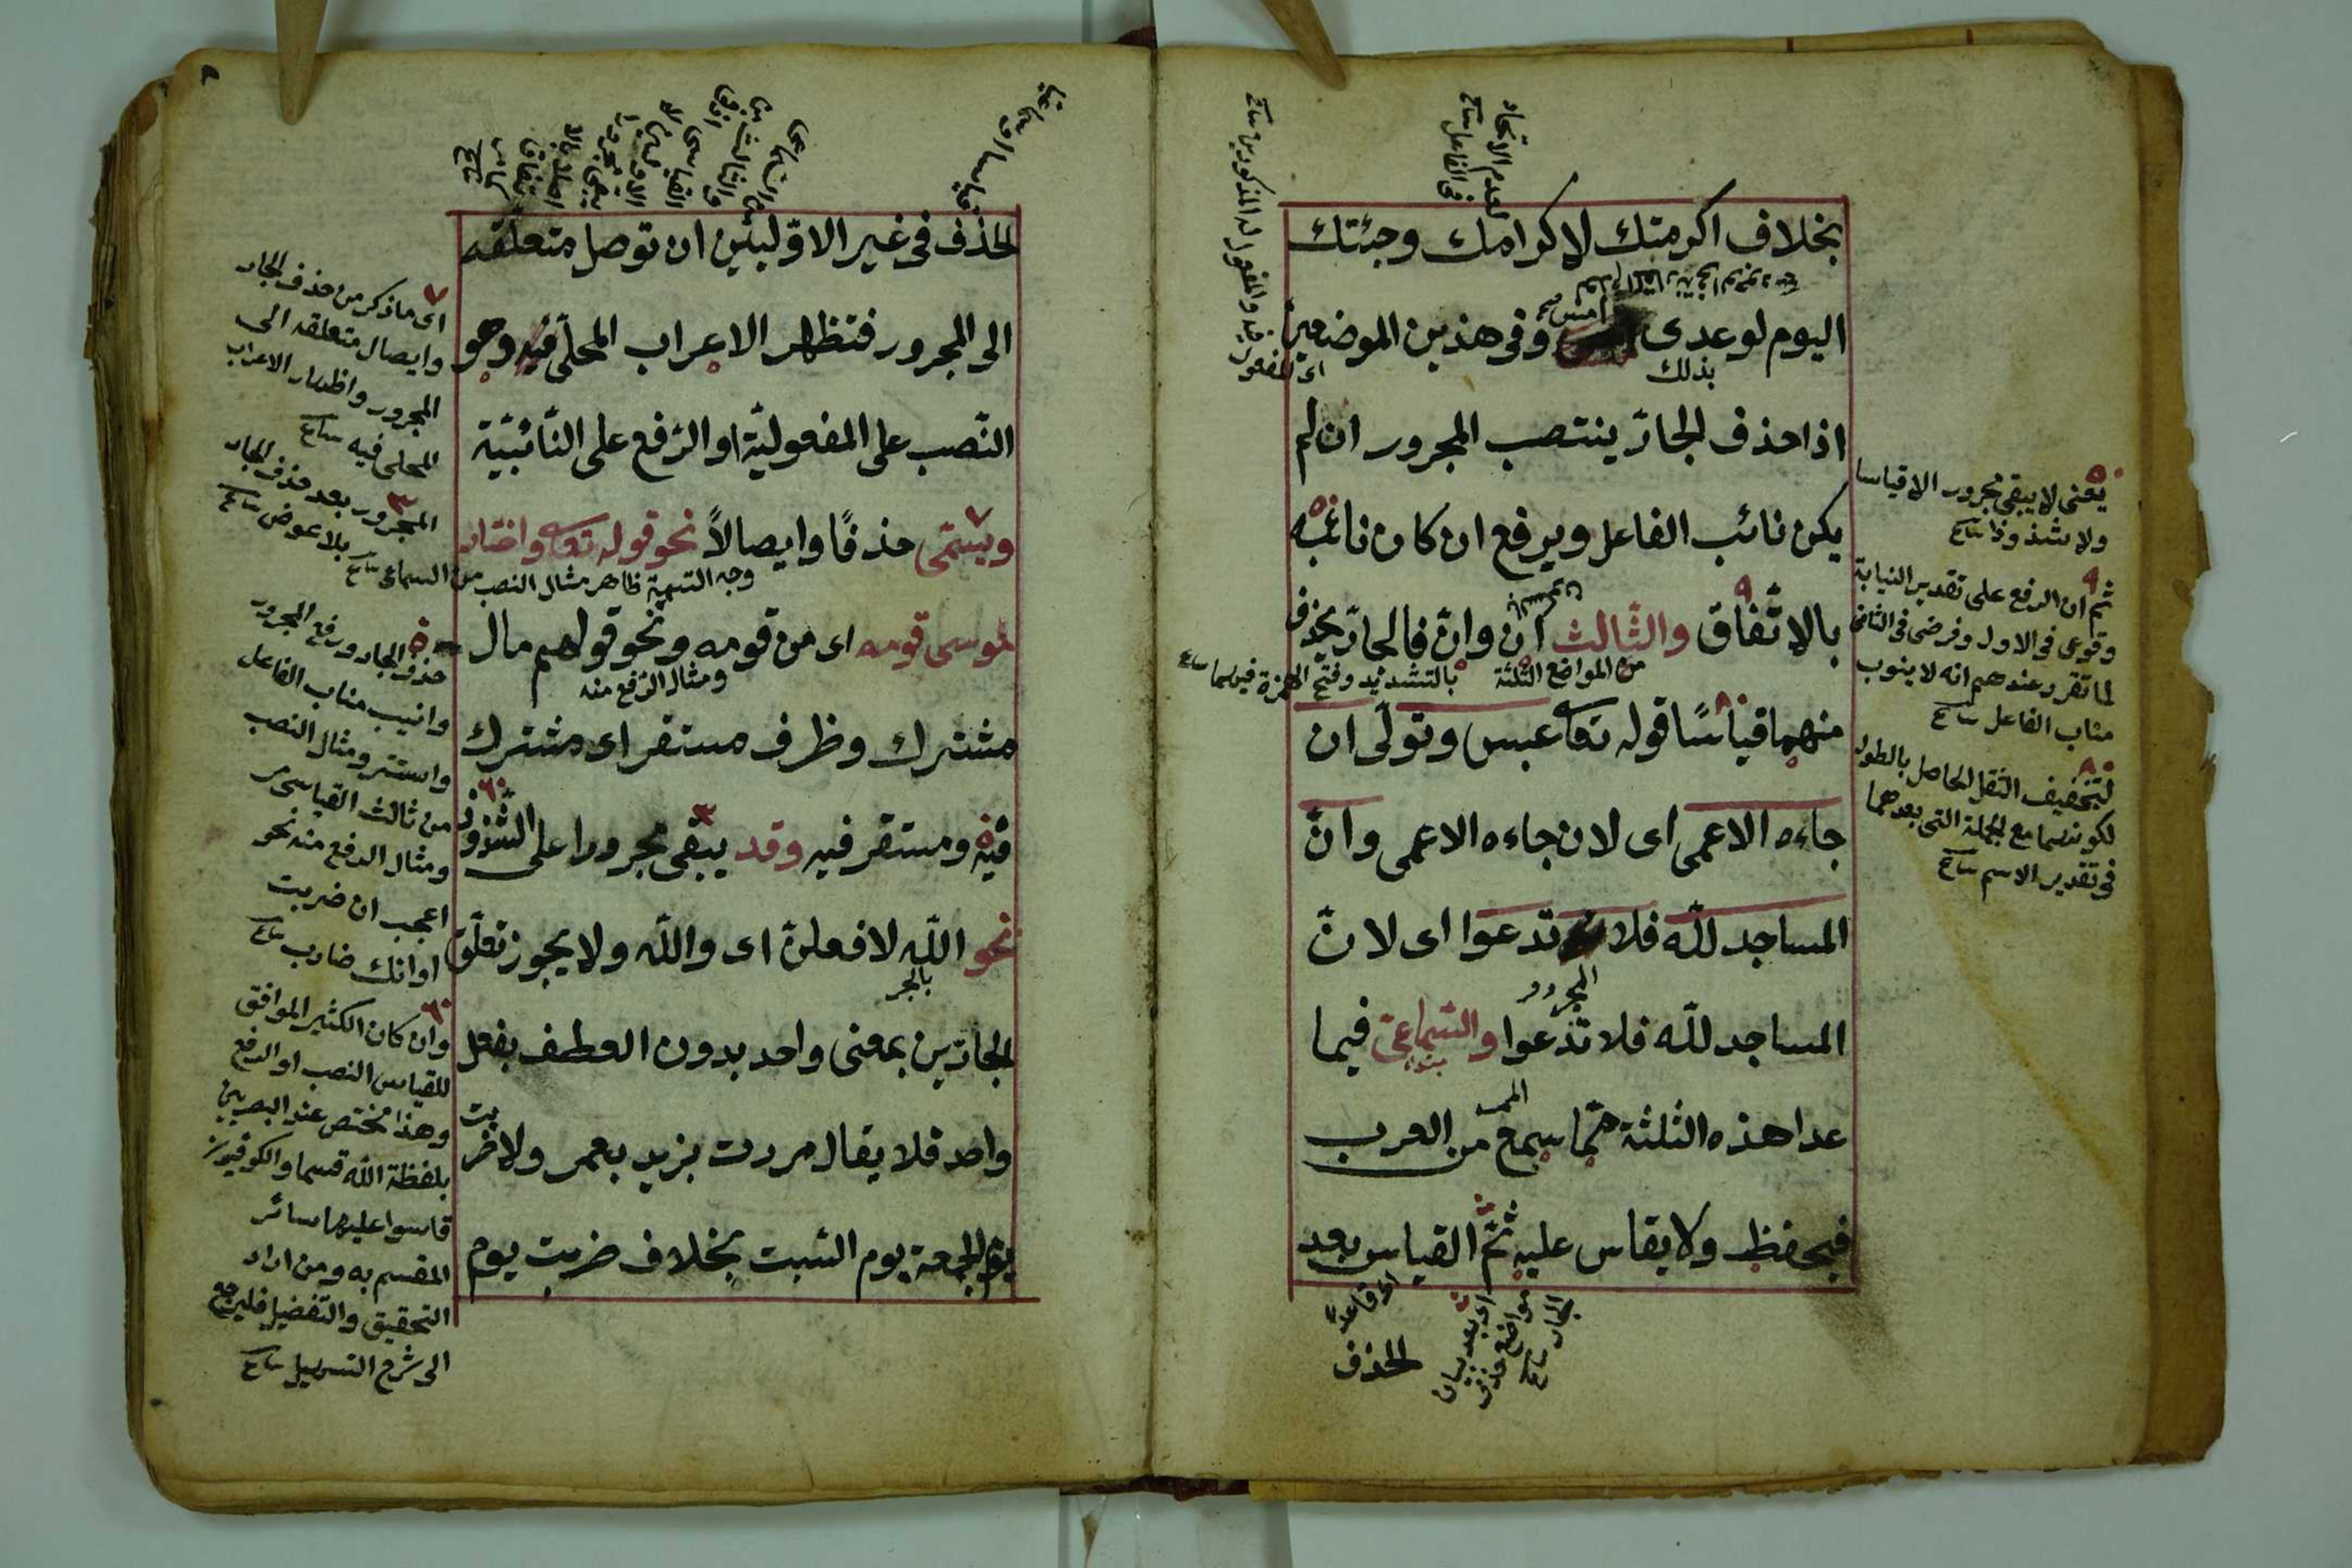 بخلاف اكرمتك لاكرامك وجئتك
اليوم لوعدى امس وفى هذين الموضعين
بذلك
اى المفعول فيه والمفعول له المذكورين
لعدم الاتحاد
فى الفاعل
اذا حذف الجارّ ينتصب المجرور ان لم
يكن نائب الفاعل ويرفع ان كان نائبه
بالاتّفاق والثّالث ان وانّ فالجارّ يحذف
من المواضع الثلثة بالتشديد وفتح الهمزة فيهما
منهما قياسًا قوله تعا عبس وتولّى ان
جاءه الاعمى اى لان جاءه الاعمى وانّ
المساجد للّه فلا تدعوا اى لانّ
المجرور
المساجد للّه فلا تدعوا والسّماعىّ فيما
عدا هذه الثلثة ممّا سمع من العرب
فيحفظ ولا يقاس عليه ثمّ القياس بعد
اى قاعدة
الحذف
اى بعد بيان
مواضع حذف
الجار
يعنى لا يبقى مجرور الا قياسا
ولا شذوذا
ثم ان الرفع على تقدير النيابة
وقوعى فى الاول وفرضى فى الثانى
لما تقرر عندهم انه لا ينوب
مناب الفاعل
لتخفيف الثقل الحاصل بالطول
لكونهما مع الجملة التى بعدهما
فى تقدير الاسم
الحذف فى غير الاوّليين ان توصل متعلّقه
الى المجرور فتظهر الاعراب المحلّى فيه وهو
النّصب على المفعوليّة او الرّفع على النّائبيّة
ويسمّى حذفًا وايصالاً نحو قوله تعا واختار
وجه التسمية ظاهر مثال النصب من السماعى
موسى قومه اى من قومه ونحو قولهم مال
ومثال الرّفع منه
مشترك وظرف مستقر اى مشترك
فيه ومستقر فيه وقد يبقى مجرورا على الشّذوذ
نحو اللّه لافعلنّ اى واللّه ولا يجوز تعلّق
بالجر
الجارّين بمعنى واحد بدون العطف بفعل
واحد فلا يقال مررت بزيد بعمر ولا ضربت
يوم الجمعة يوم السّبت بخلاف ضربت يوم
اى ما ذكر من حذف الجار
وايصال متعلقه الى
المجرور واظهار الاعراب
المحلى فيه
المجرور بعد حذف الجار
بلا عوض
حذف الجار ورفع المجرور
وانيب مناب الفاعل
واستتر ومثال النصب
من ثالث القياسى مر
ومثال الرفع منه نحو
اعجب ان ضربت
او انك ضارب
وان كان الكثير الموافق
للقياس النصب او الرفع
وهذا مختص عند البصريين
بلفظة اللّه قسما والكوفيون
قاسوا عليها سائر
المقسم به ومن اراد
التحقيق والتفصيل فليرجع
الى شرح التسهيل